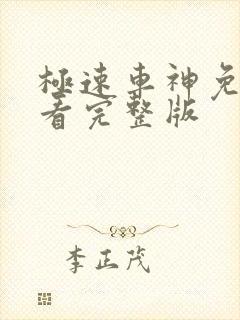 極速車神免
看完整版
李正茂